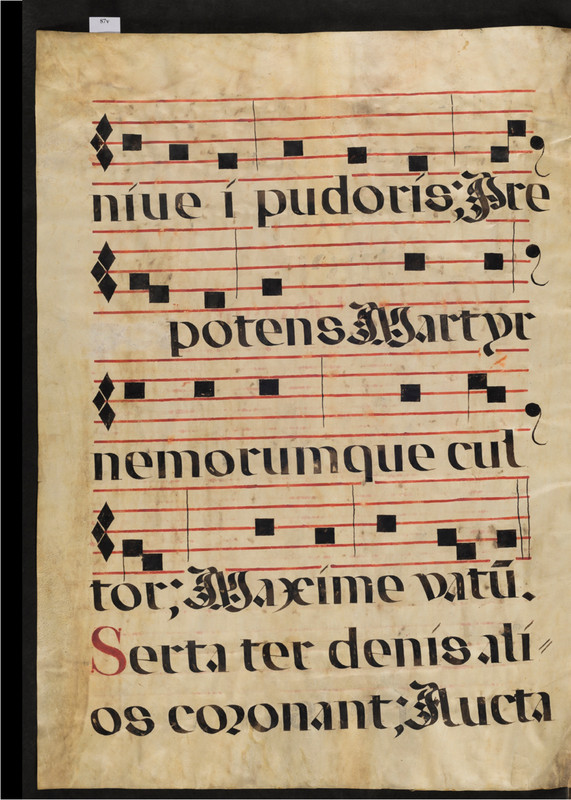 87v
niue i pudoris; Pre
potens Martyr
nemorumque cul
tor; Maxime vatū.
Serta ter denis ali〃
os coronant; Aucta